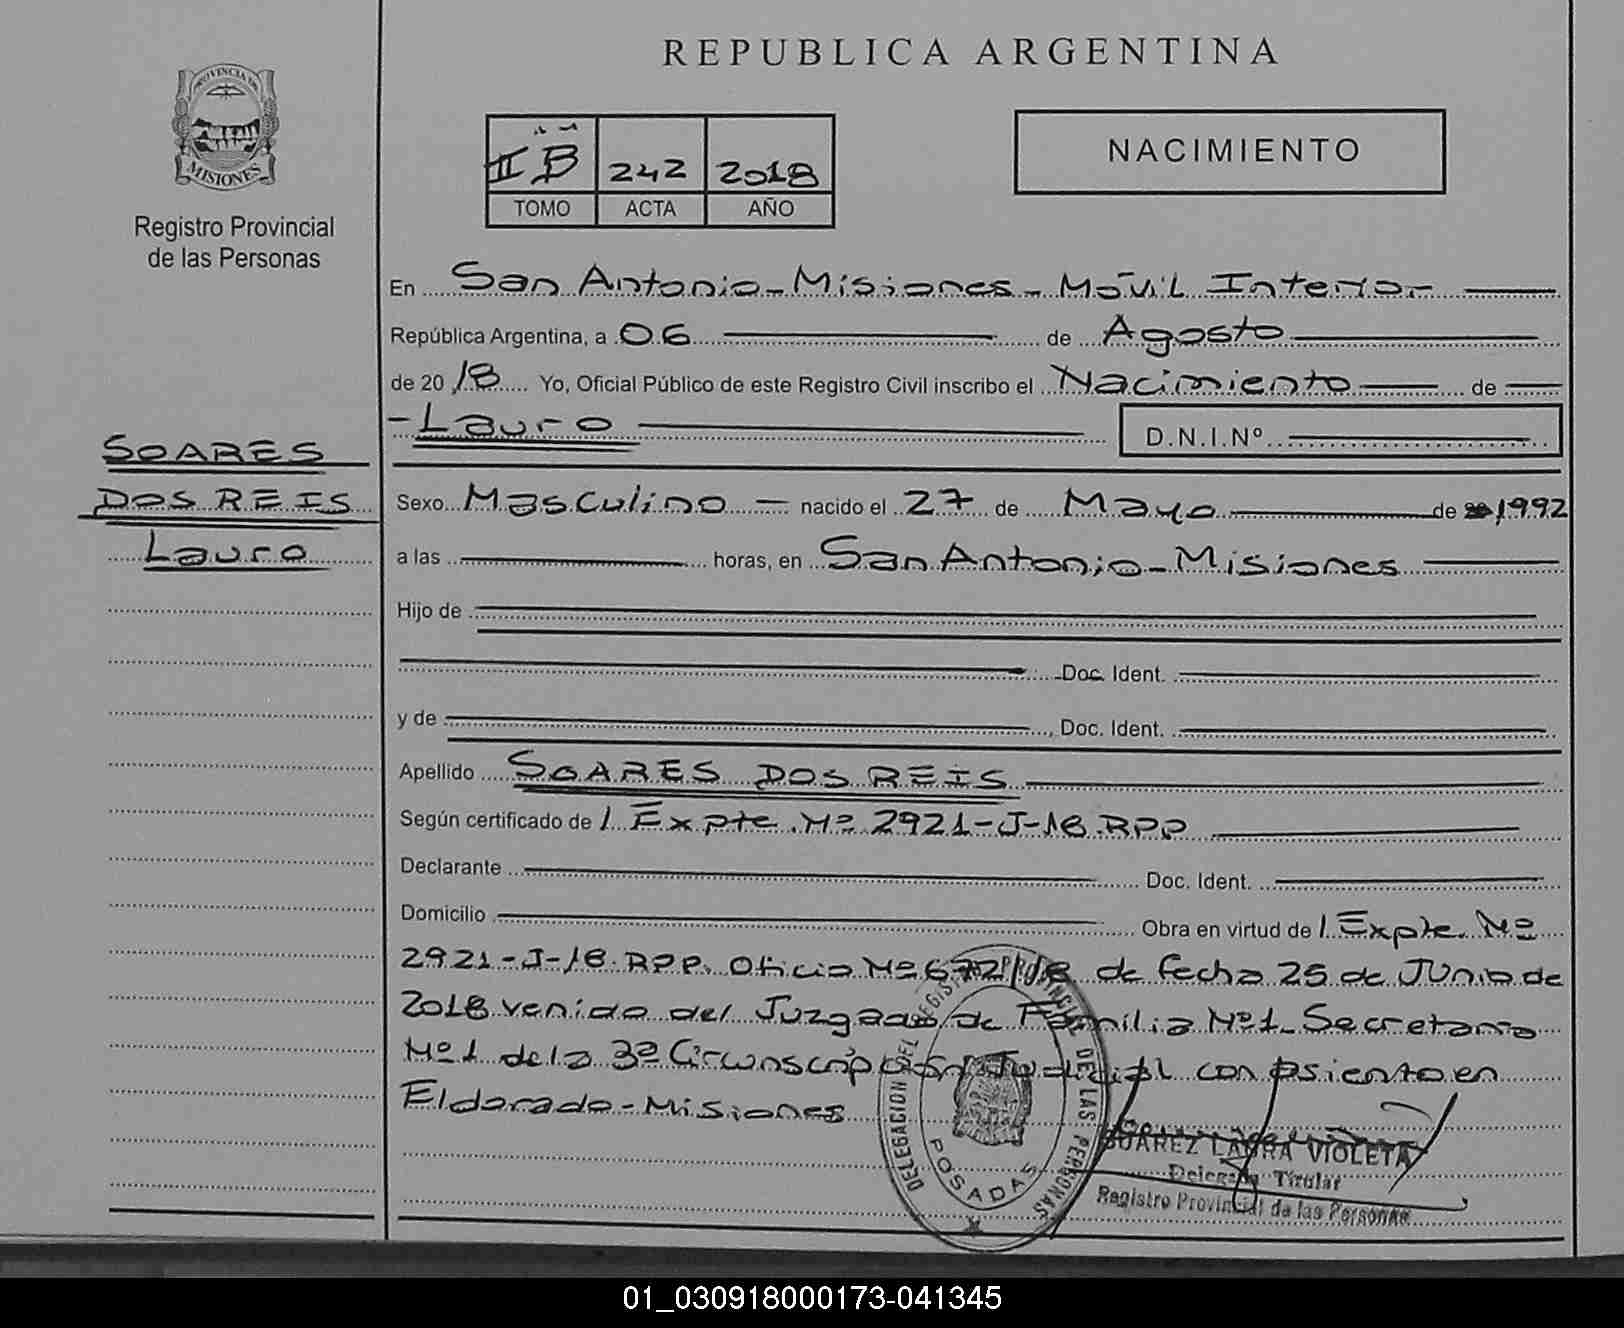 REPUBLICA ARGENTINA
PROVINCIA DE
MISIONES
Registro Provincial
de las Personas
II B 242 2018
TOMO ACTA AÑO
NACIMIENTO
En San Antonio - Misiones - Móvil Interior
República Argentina, a 06 de Agosto
de 2018 Yo, Oficial Público de este Registro Civil inscribo el Nacimiento de
- Lauro
D.N.I.Nº
SOARES
DOS REIS
Lauro
Sexo Masculino nacido el 27 de Mayo de 1992
a las horas, en San Antonio - Misiones
Hijo de
Doc. Ident.
y de , Doc. Ident.
Apellido SOARES DOS REIS
Según certificado de / Expte. Nº 2921-J-18. RPP
Declarante Doc. Ident.
Domicilio Obra en virtud de / Expte. Nº
2921-J-18. RPP. Oficio Nº 672/18 de fecha 25 de Junio de
2018 venido del Juzgado de Familia Nº1 - Secretaria
Nº1 de la 3ª Circunscripción Judicial con asiento en
Eldorado - Misiones
DELEGACION DEL REGISTRO PROVINCIAL DE LAS PERSONAS
POSADAS
SUAREZ LAURA VIOLETA
Delegada Titular
Registro Provincial de las Personas
01_030918000173-041345